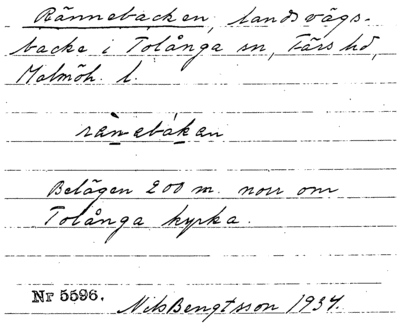 Rännebacken, landsvägs-
backe i Tolånga sn, Färs hd,
Malmöh. l.
rän̲ebák̲an
Belägen 200 m. norr om
Tolånga kyrka.
Nr 5596. Nils Bengtsson 1934.